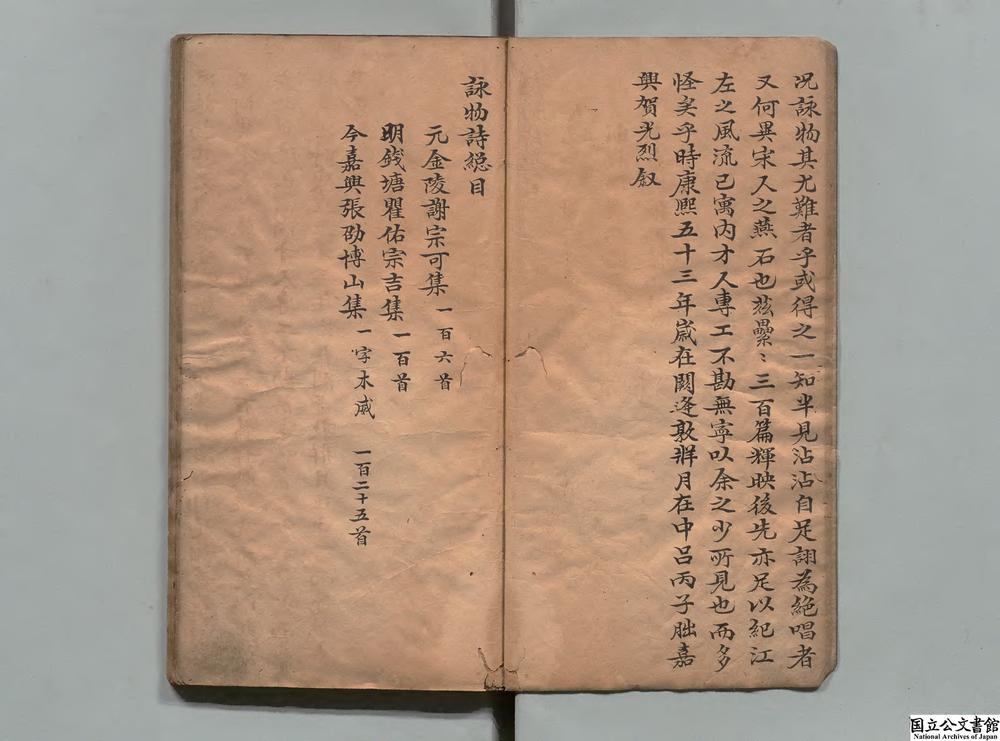 况詠物其尤難者乎或得之一知半見沾沾自足詡為絶唱者
又何異宋人之燕石也玆纍〻三百篇輝映後先亦足以紀江
左之風流已寓内才人專工不尠無寧以余之少所見也而多
怪矣乎時康熙五十三年嵗在閼逢敦牂月在中吕丙子朏嘉
興賀光烈叙
詠物詩總目
元金陵謝宗可集 一百六首
明錢塘瞿佑宗吉集 一百首
今嘉興張劭博山集 一字木威 一百二十五首
国立公文書館
National Archives of Japan